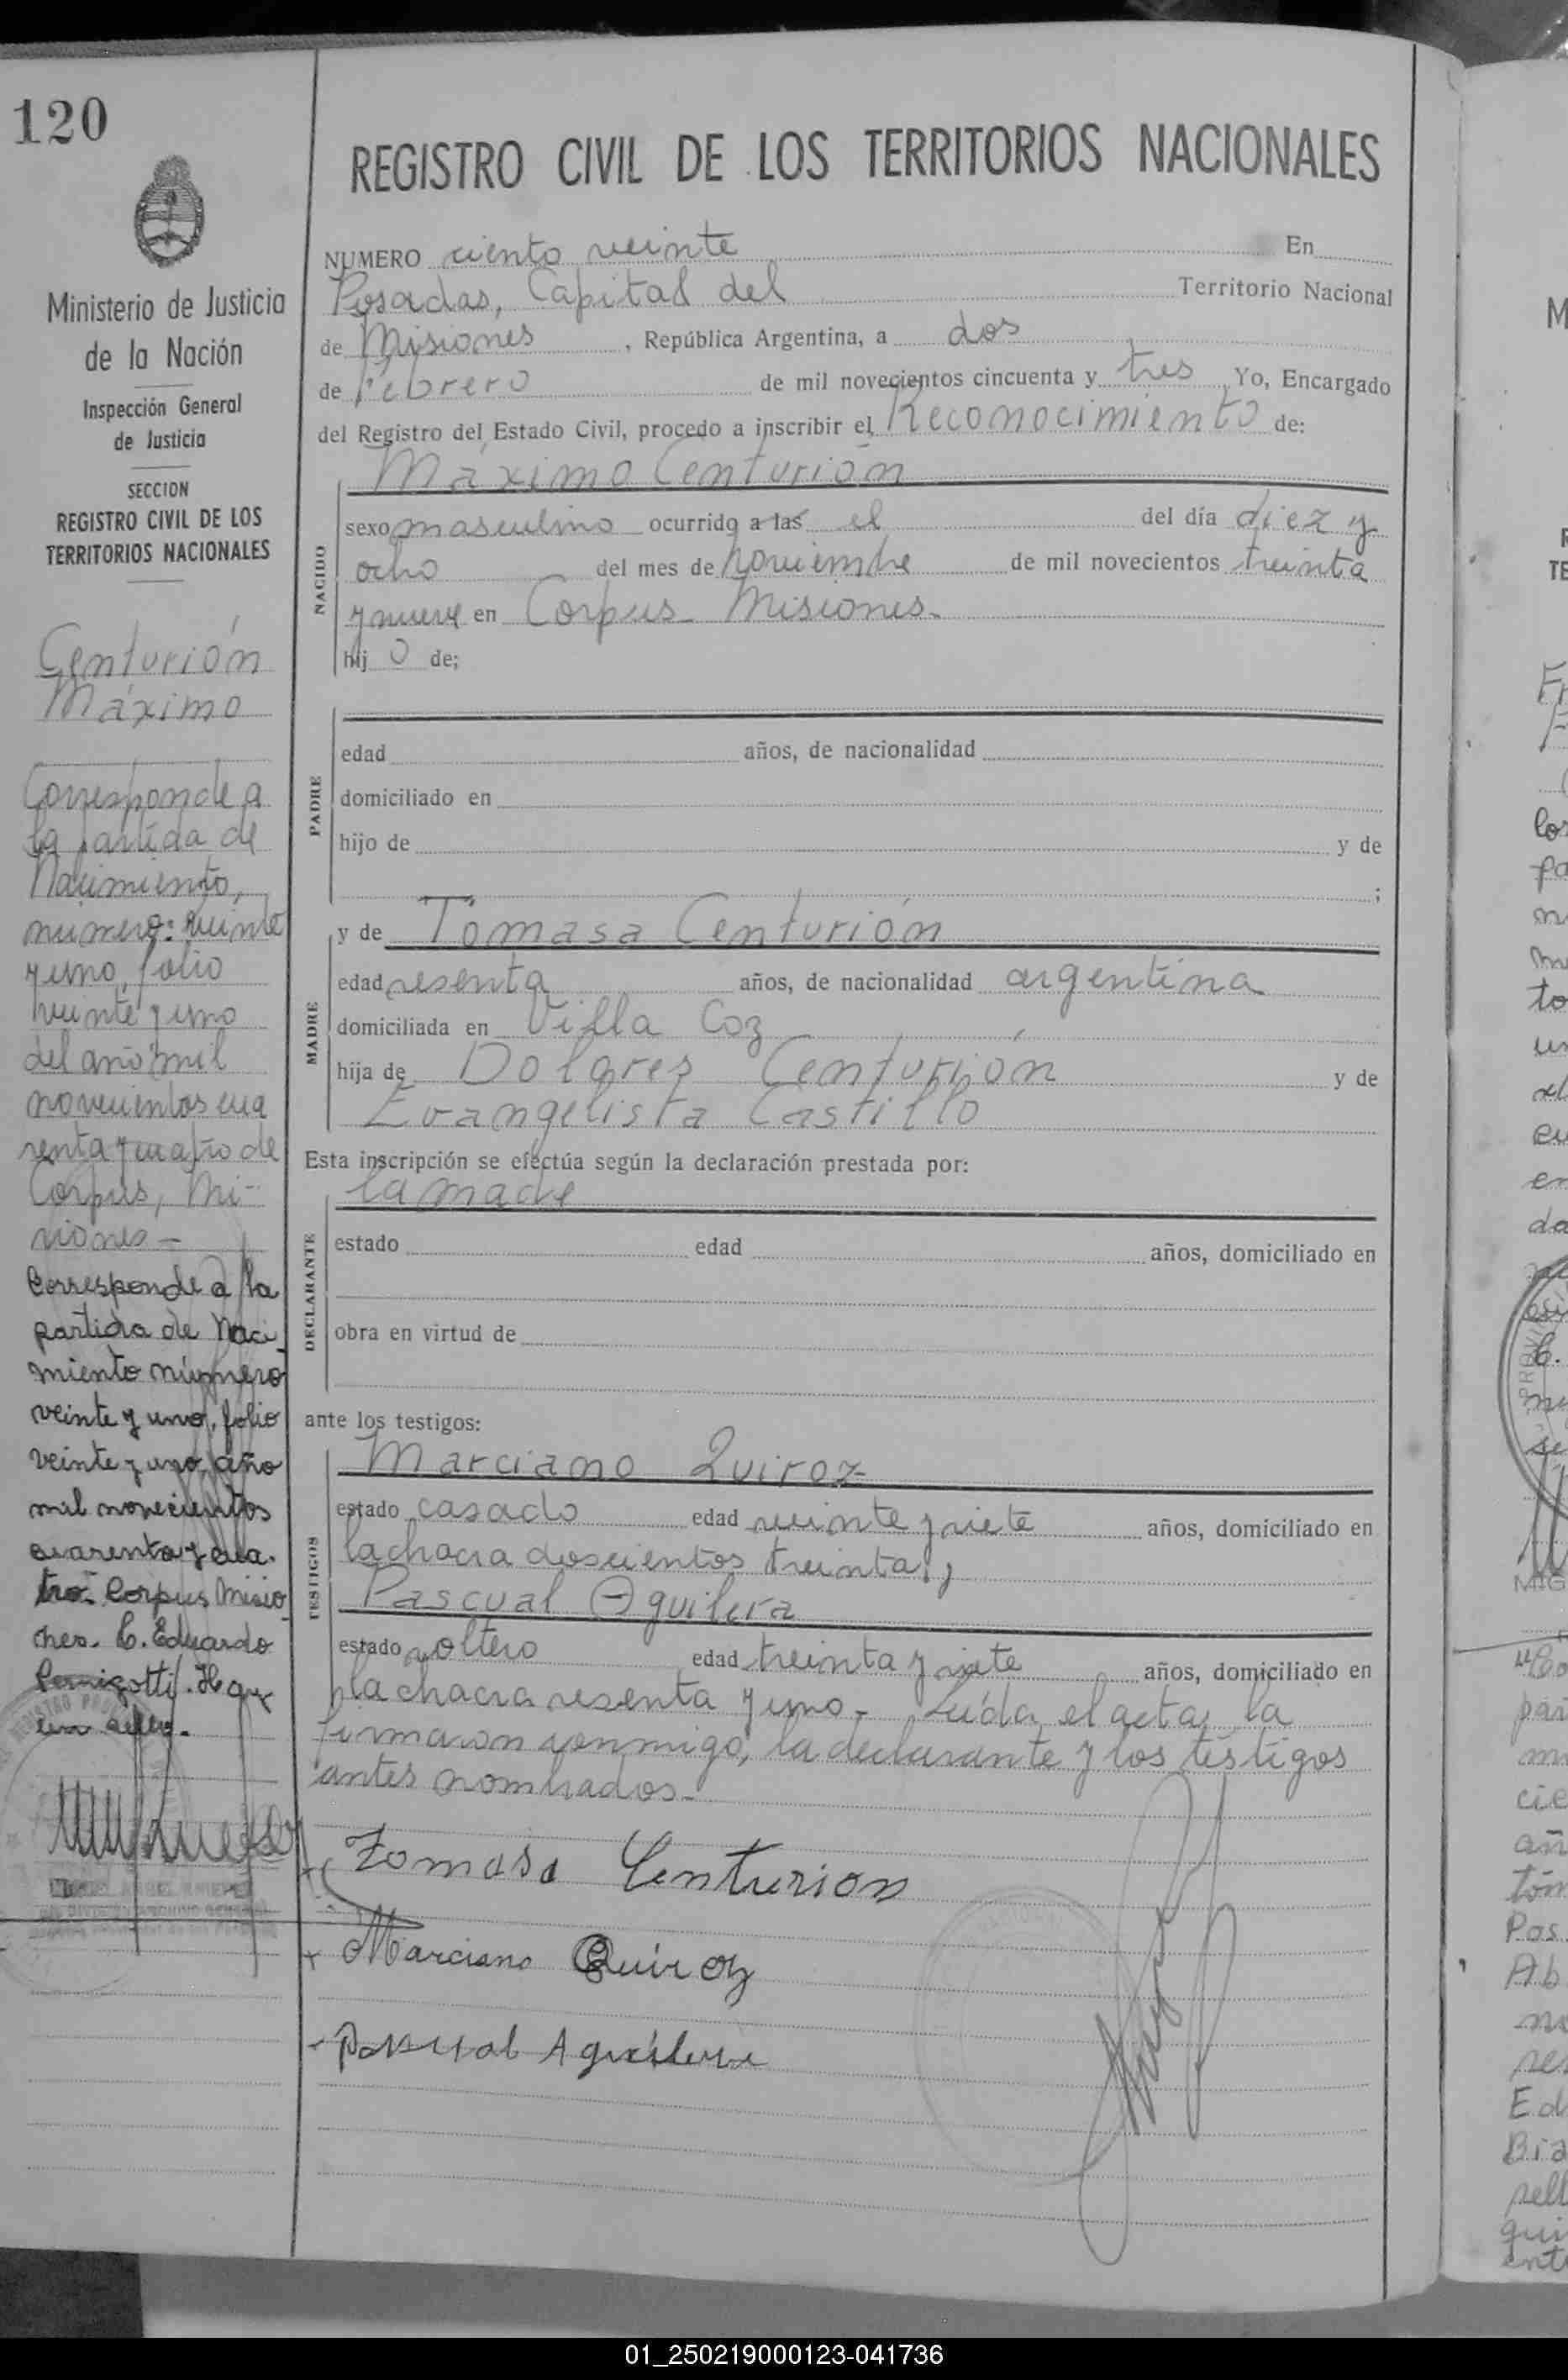 120
Ministerio de Justicia
de la Nación
Inspección General
de Justicia
SECCION
REGISTRO CIVIL DE LOS
TERRITORIOS NACIONALES
Centurión
Máximo
Corresponde a
la partida de
Nacimiento,
número: veinte
y uno, folio
veinte y uno
del año mil
novecientos cua
renta y cuatro de
Corpus, Mi-
siones -
Corresponde a la
partida de Naci_
miento número
veinte y uno, folio
veinte y uno, año
mil novecientos
cuarenta y cua.
tro. Corpus Misio_
nes. C. Eduardo
Pernigotti. Hay
un sello.
REGISTRO CIVIL DE LOS TERRITORIOS NACIONALES
NUMERO ciento veinte En
Posadas, Capital del Territorio Nacional
de Misiones , República Argentina, a dos
de Febrero de mil novecientos cincuenta y tres Yo, Encargado
del Registro del Estado Civil, procedo a inscribir el Reconocimiento de:
Máximo Centurión
NACIDO
sexo masculino ocurrido a las el del día diez y
ocho del mes de Noviembre de mil novecientos treinta
y nueve en Corpus Misiones.
hij o de;
PADRE
edad años, de nacionalidad
domiciliado en
hijo de y de
;
MADRE
y de Tomasa Centurión
edad sesenta años, de nacionalidad argentina
domiciliada en Villa Coz
hija de Dolores Centurión y de
Evangelista Castillo
Esta inscripción se efectúa según la declaración prestada por:
la madre
DECLARANTE
estado edad años, domiciliado en
obra en virtud de
ante los testigos:
TESTIGOS
Marciano Quiroz
estado casado edad veinte y siete años, domiciliado en
la chacra doscientos treinta;
Pascual Aguilera
estado soltero edad treinta y siete años, domiciliado en
la chacra sesenta y uno. Leída el acta, la
firmaron conmigo, la declarante y los testigos
antes nombrados.-
Tomasa Centurion
Marciano Quiroz
Pascual Aguilera
01_250219000123-041736